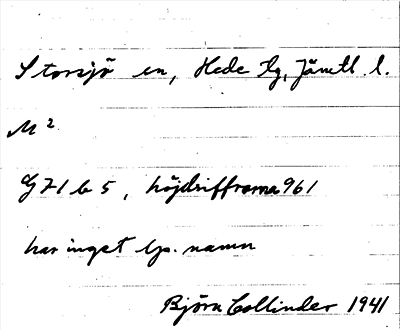 Storsjö en, Hede tg, Jämtl. l.
M 2
G 71 b 5, höjdsiffrorna 961
har inget lp. namn
Björn Collinder 1941